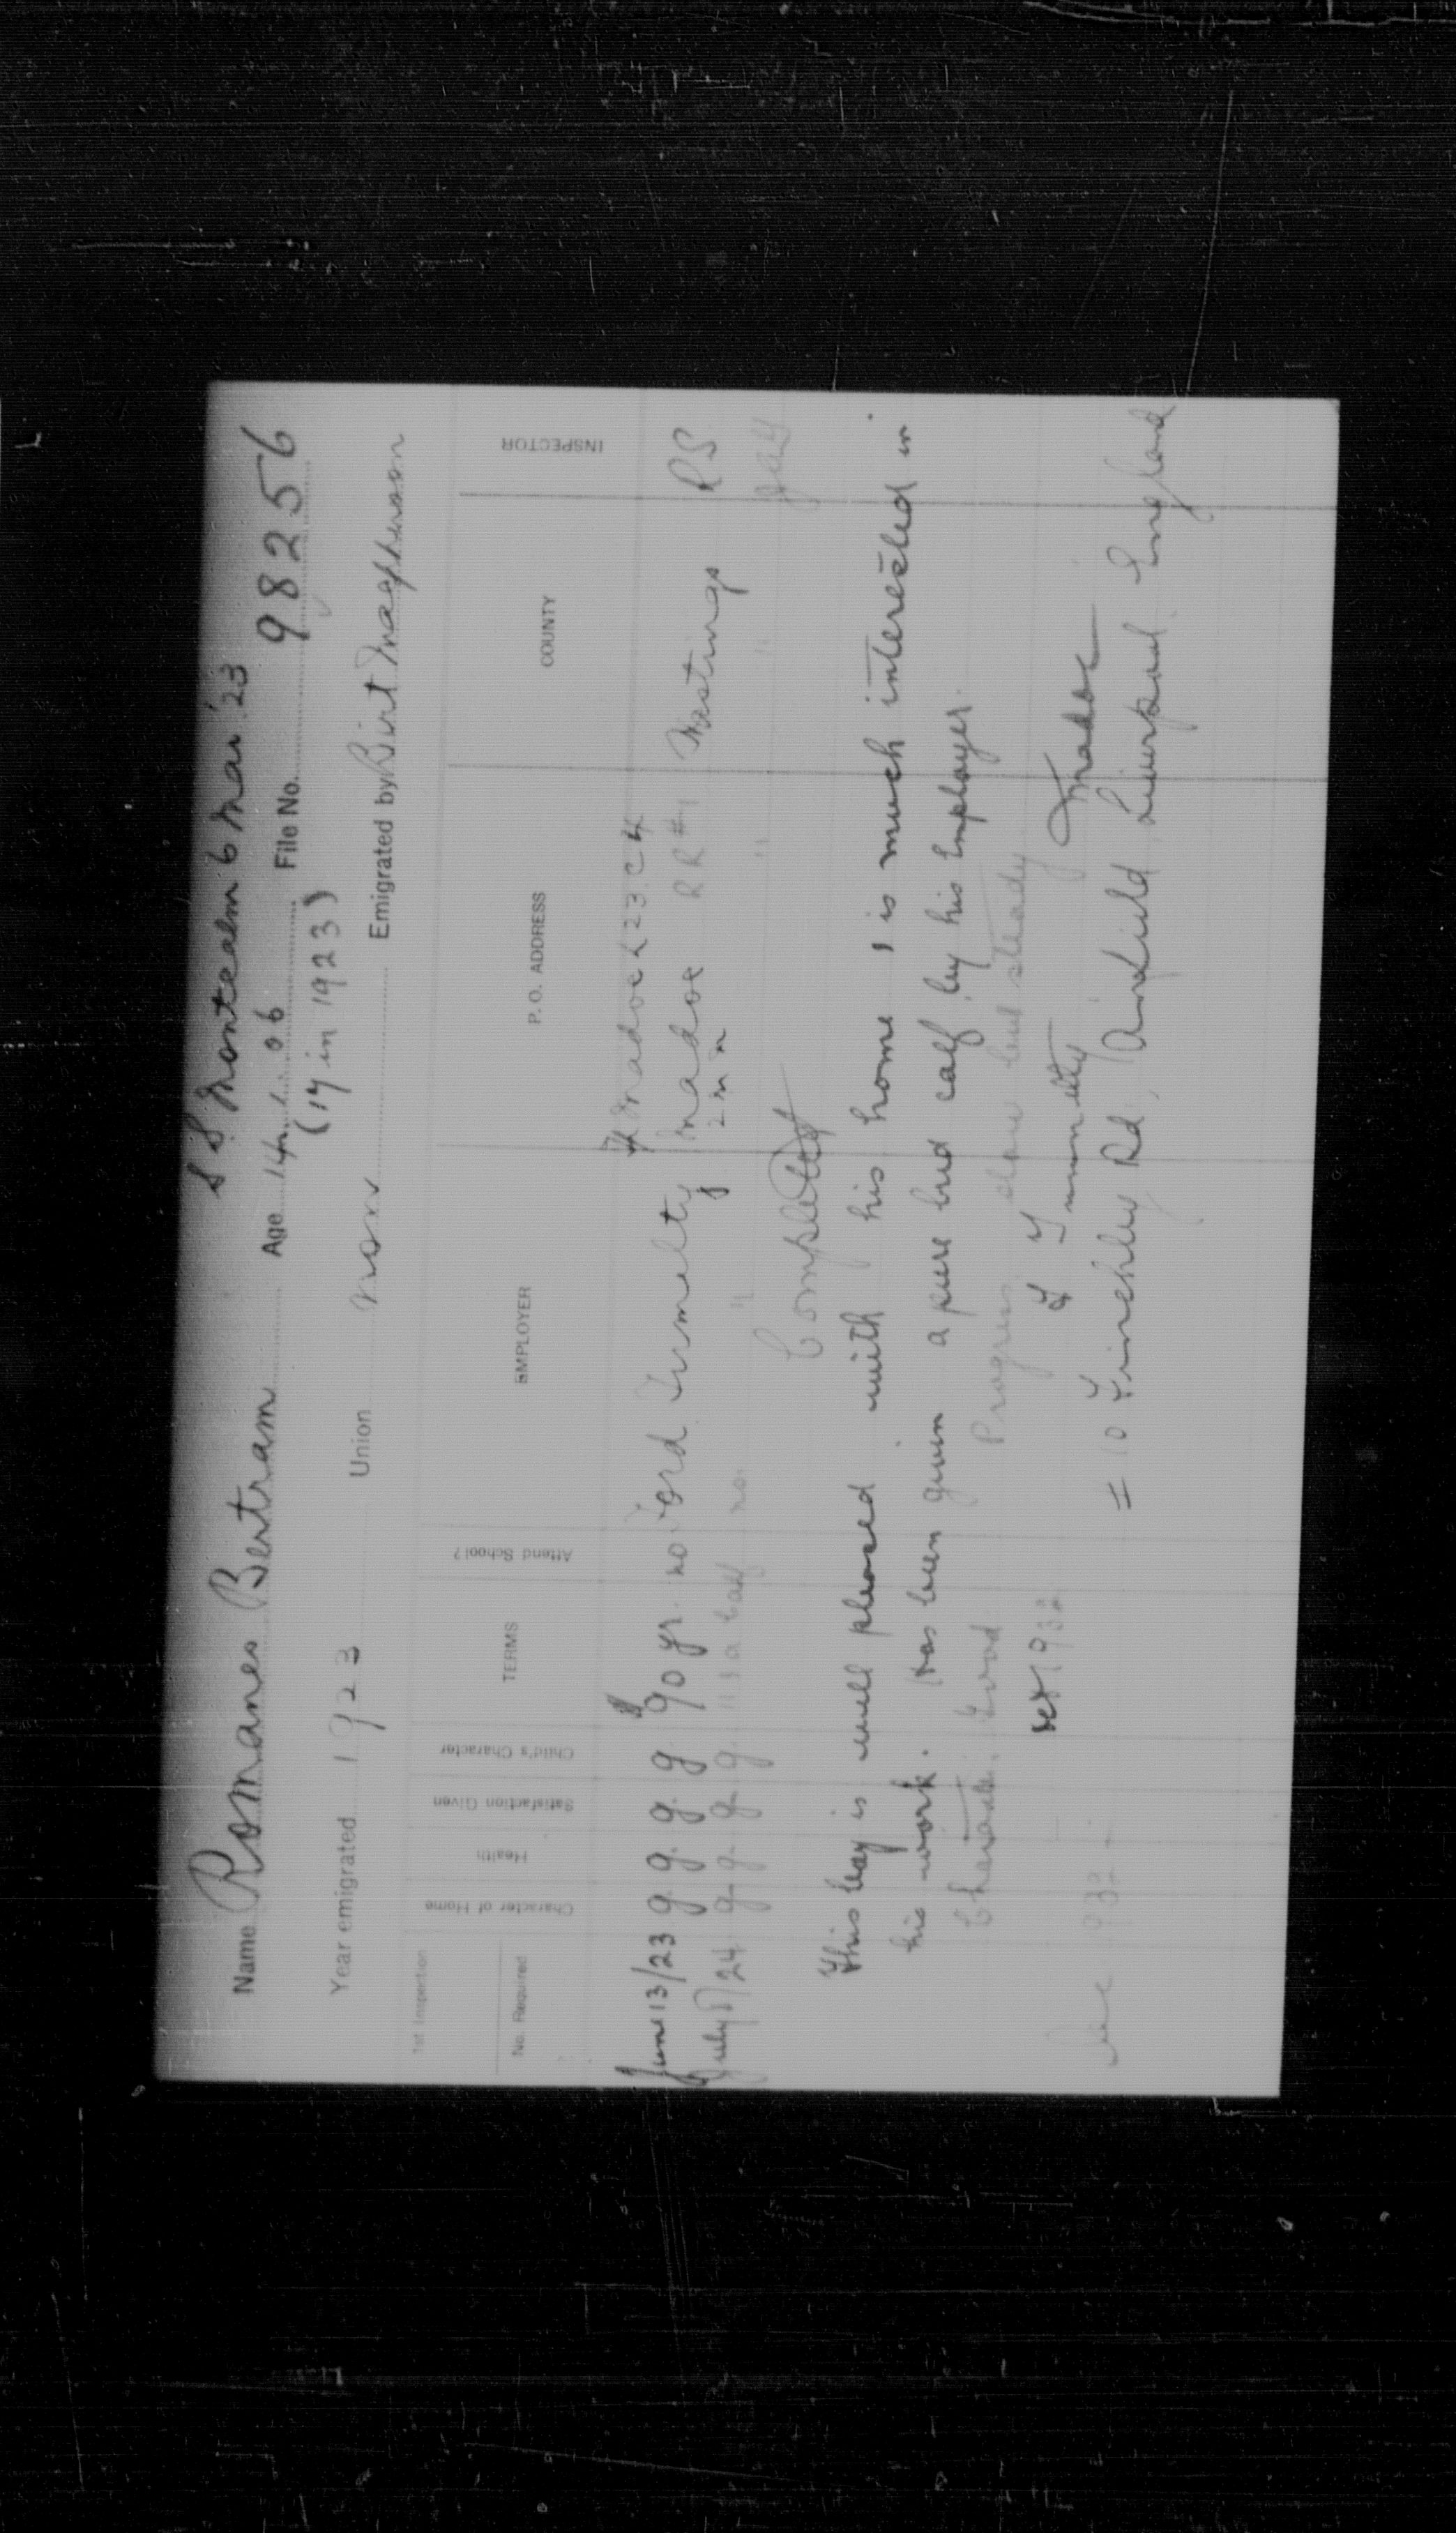 S S Montcalm 6 Mar. '23
Name Romanes Bertram Age 14.1.06 File No. 98256
(17 in 1923)
Year emigrated 1923 Union non Emigrated by Birt Macpherson
1st Inspection
No. Required Character of Home Health Satisfaction Given Child's Character TERMS Attend School? EMPLOYER P. O. ADDRESS COUNTY INSPECTOR
Madoc L 23 C 4
June 13/23 g g. g. g $90 yr. no Ford Tumelty Madoc RR #1 Hastings RS
July 5/24 g g g g. " & a calf no. " " "
2 m n
Completed
This boy is well pleased with his home & is much interested in
his work. Has been given a pure bred calf by his Employer.
Charact. Good Progress slow but steady
Oct 1932 F Tummelty Madoc
Dec 932 = 10 Finchley Rd, Anfield, Liverpool England